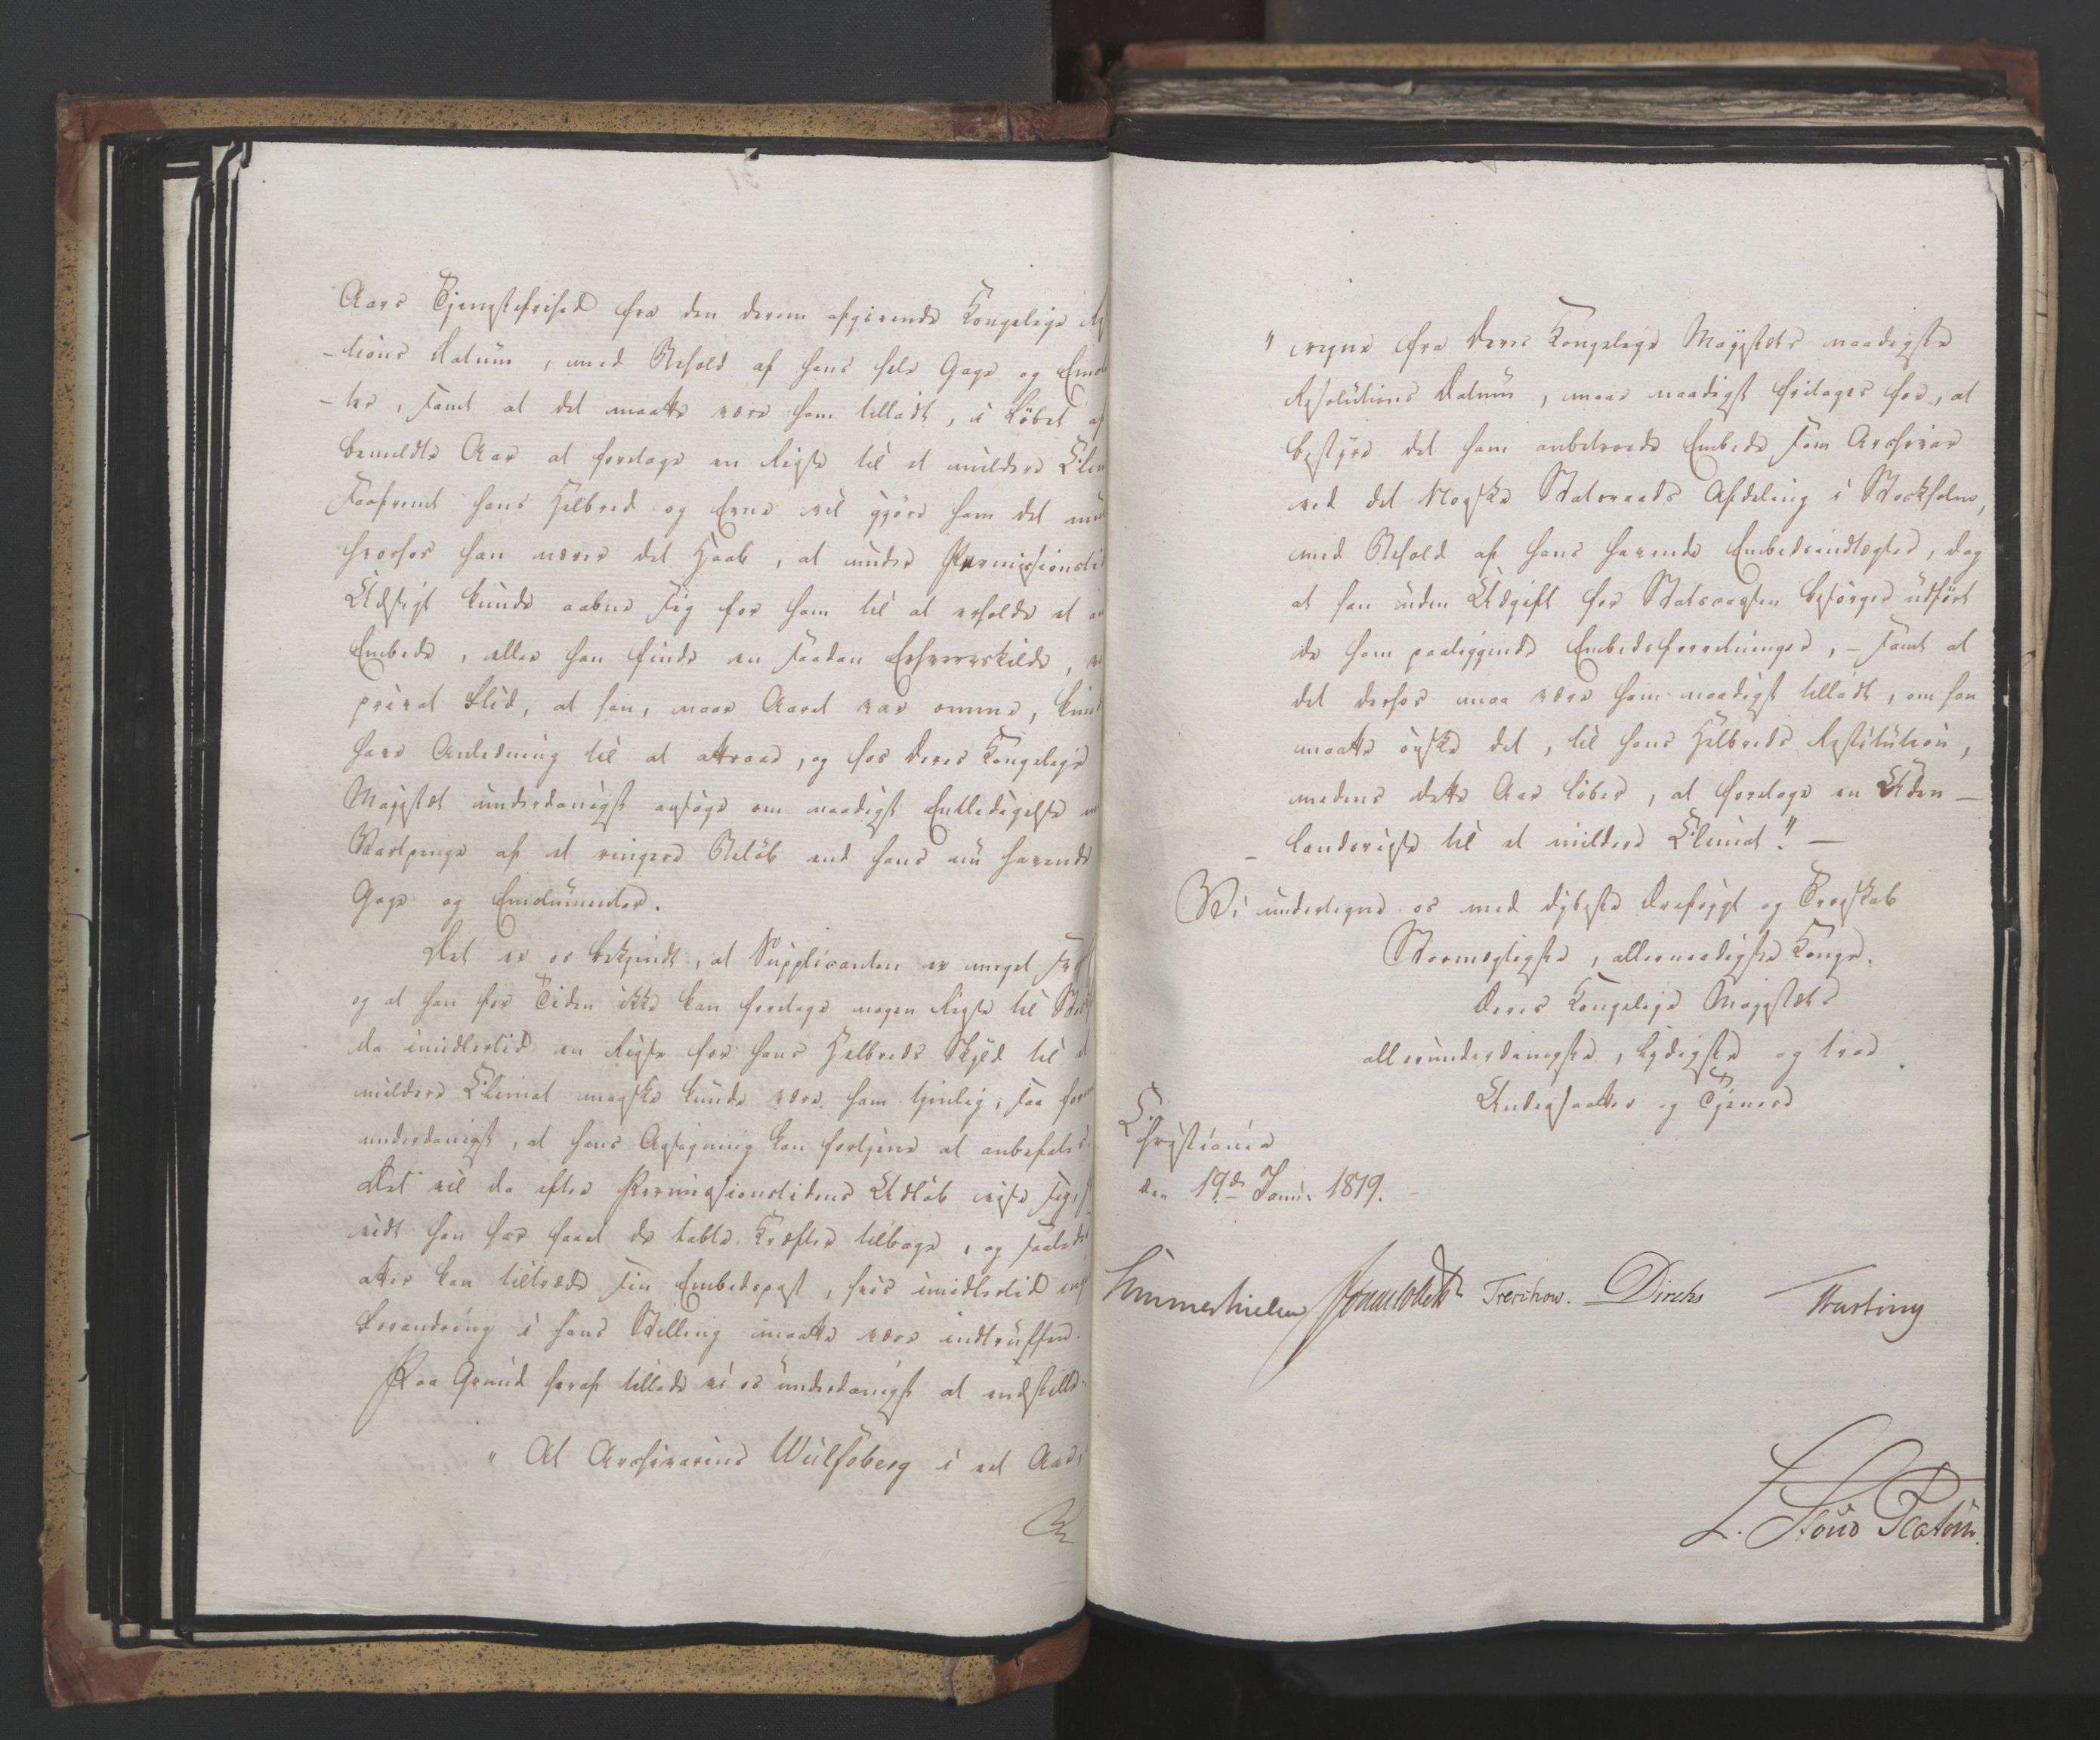 Aars Tjenestefrihed fra den derom afgivende Kongelige
-tions Datum, med Behold af hans hele Gage og
-ter, samt at det maatte være ham tilladt, i Løbet af
bemeldte Aar at foretage en Reise til et mildere
saafremt hans Helbred og Evne vil gjøre ham det
hvorhos han nærer det Haab, at under
Udsigt kunde aabne sig for ham til at erholde et
Embede, eller han finde en saadan Erhvervskilde,
privat Flid, at han, naar Aaret var omme,
have Anledning til at attraae, og hos Deres Kongelige
Majestæt underdanigst ansøge om naadigst Entledigelse
Vartpenge af et ringere Beløb end hans nu havende
Gage og Emolumenter.
Det er os bekjendt, at Supplicanten er meget
og at han for Tiden ikke kan foretage nogen Reise til
da imidlertid en Reise for hans Helbreds Skyld til et
mildere Climat maaske kunde være ham tjenlig, saa
underdanigst, at hans Ansøgning kan fortjene at anbefales.
Det vil da efter Permissionstidens Udløb vise sig,
vidt han har faaet de tabte Kræfter tilbage, og saaledes
atter kan tiltræde sin Embedspost, hvis imidlertid
Forandring i hans Stilling maatte være indtruffen.
Paa Grund heraf tillade vi os underdanigst at indstille:
" At Archivarius Wulfsberg i eet Aar,
" regnet fra Deres Kongelige Majestæts naadigste
Resolutions Datum, maae naadigst fritages for, at
bestyre det ham anbetroede Embede som Archivar
ved det Norske Statsraads Afdeling i Stockholm,
med Behold af hans havende Embedsindtægter, dog
at han uden Udgift for Statscassen besørger udført
de ham paaliggende Embedsforretninger, - samt at
det derhos maa være ham naadigst tilladt, om han
maatte ønske det, til hans Helbreds Restitution,
medens dette Aar løber, at foretage en Uden-
-landsreise til et mildere Climat." -
Vi undertegne os med dybeste Ærefrygt og Troskab
Stormægtigste, allernaadigste Konge.
Deres Kongelige Majestæts
allerunderdanigste, lydigste og troe
Undersaatter og Tjenere
Christiania
den 19de Juni 1819.
Sommerhielm Treschow. Diriks Fasting
L. Stoud Platou.